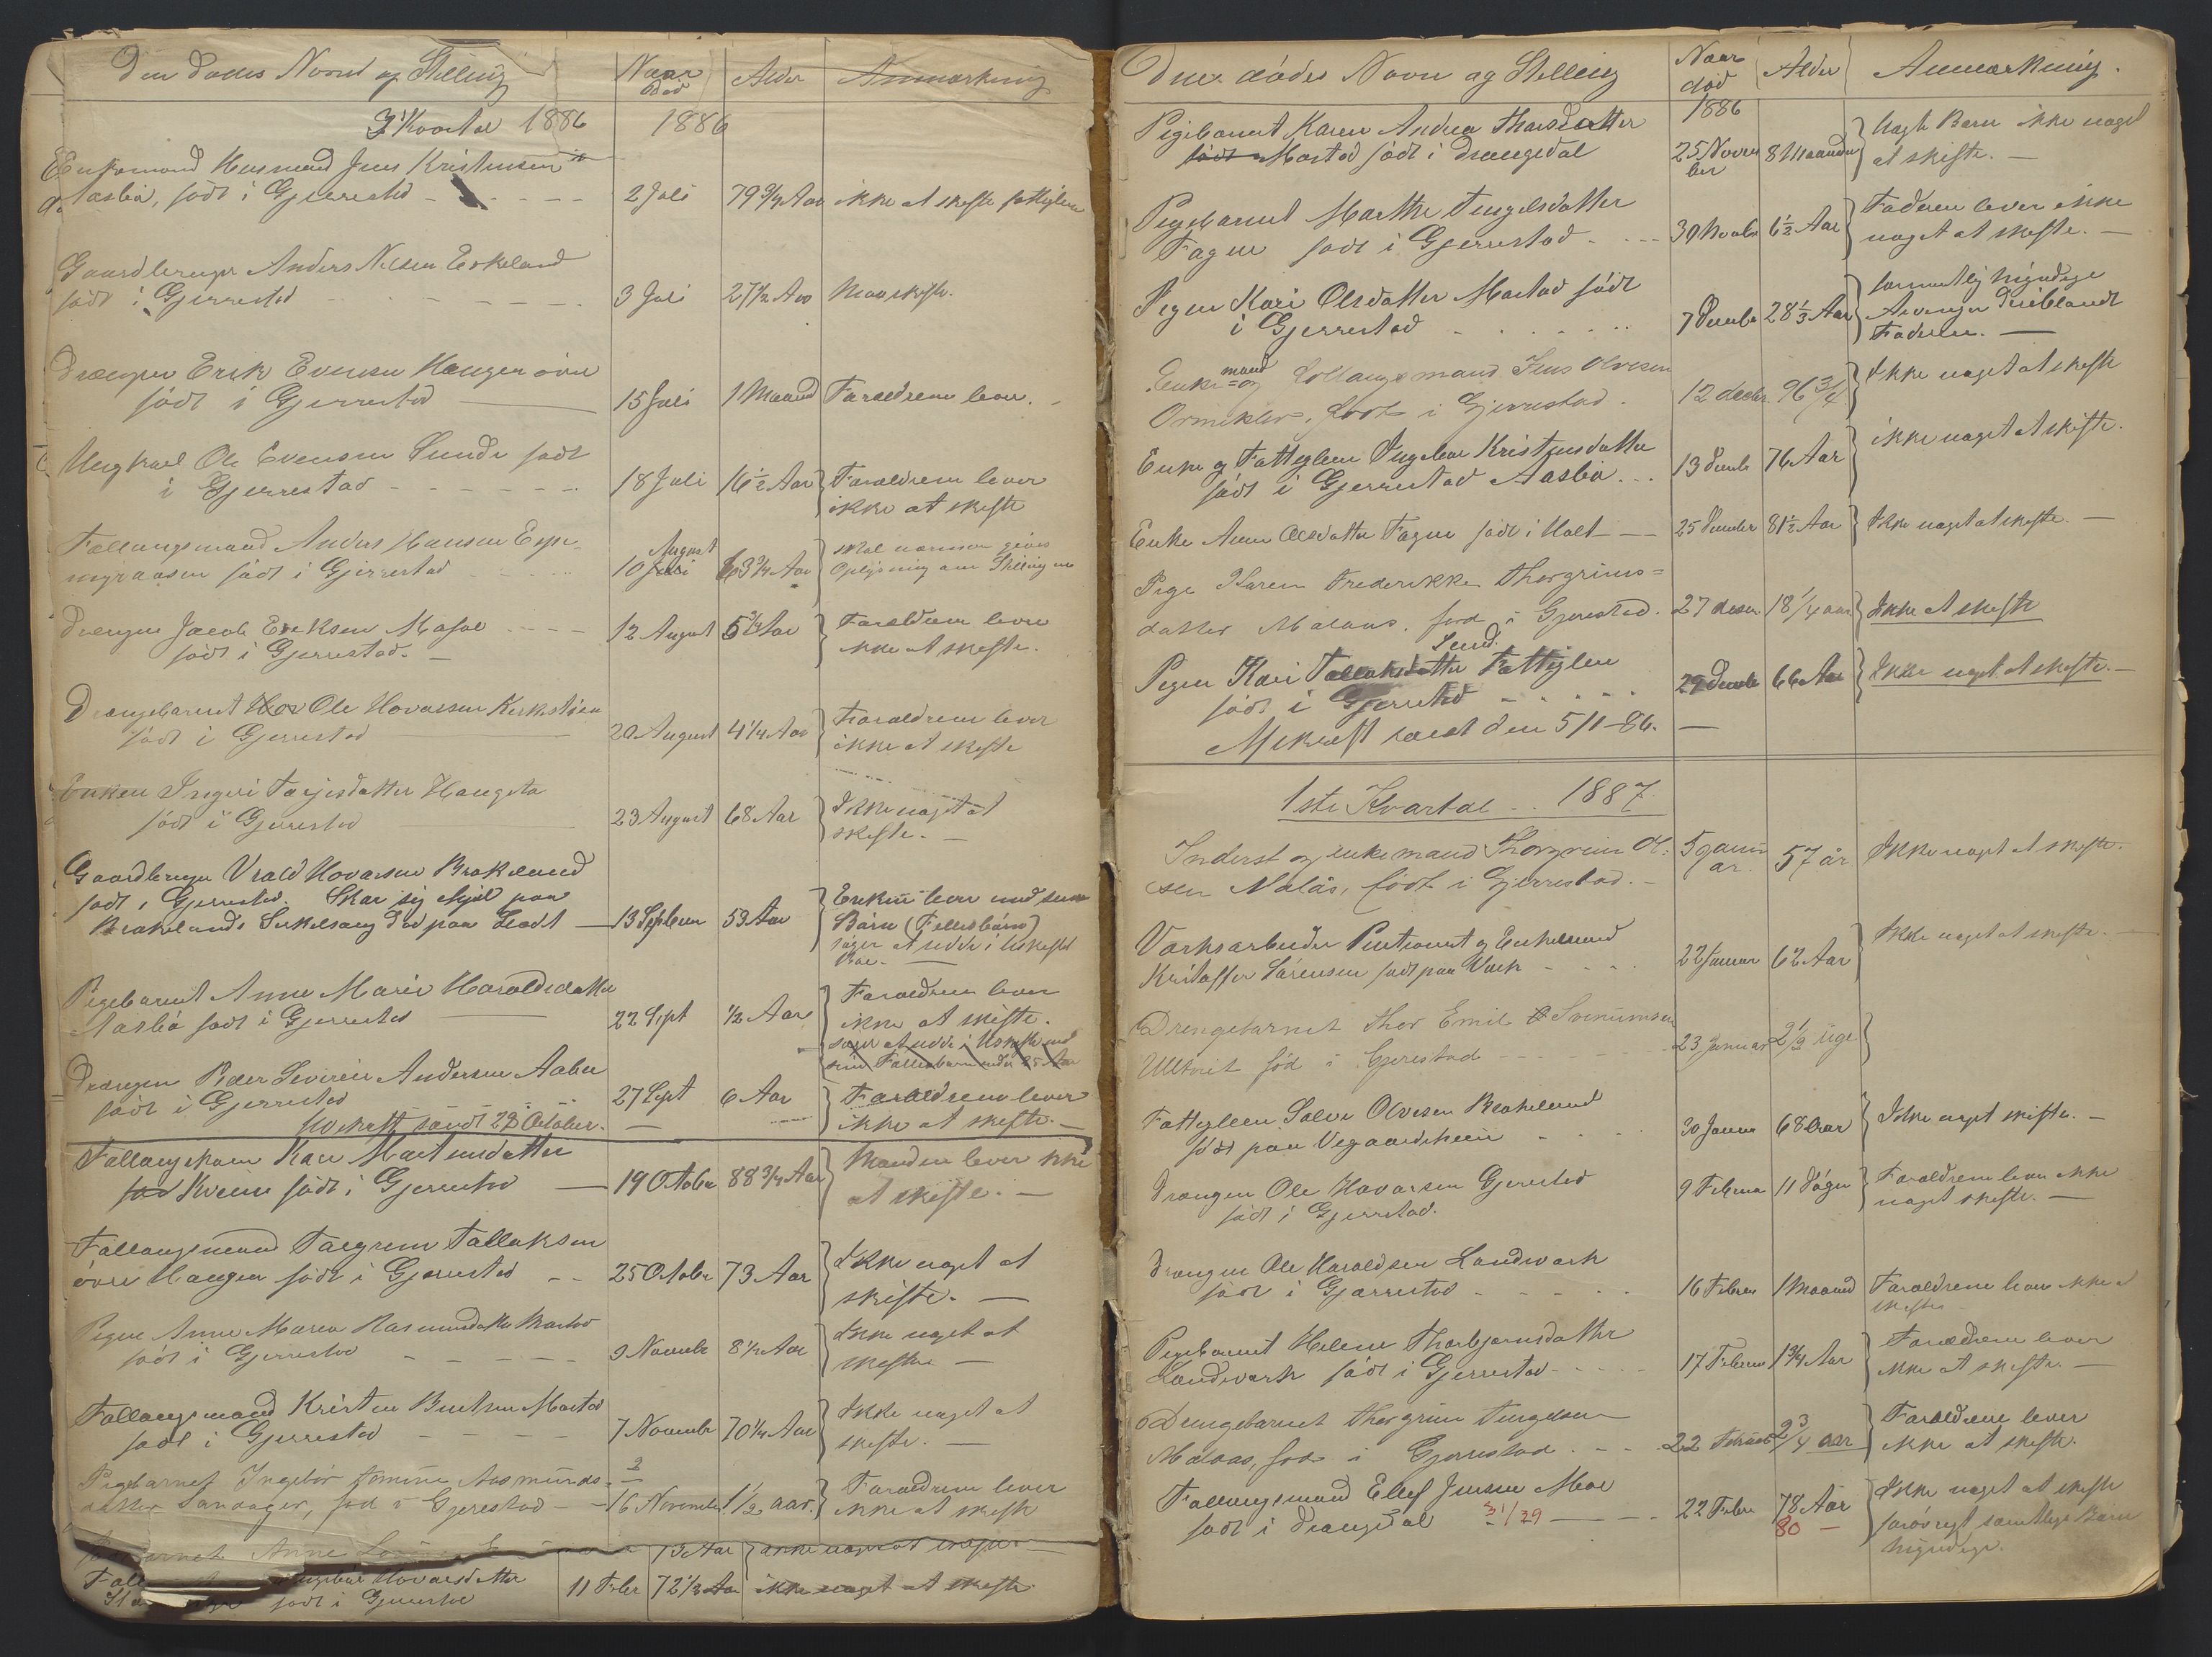 Den dødes Navn og Stilling Naar død Alder Anmærkning
3' Kvartal 1886 1886
Enkemand Husmand Jens Kristensen
Aasbø, født i Gjerrestad - - - - 2 Juli 79 3/4 Aar ikke at skifte fattiglem
Gaardbruger Anders Nilsen Eskeland
født i Gjerrestad - - - - 3 Juli 27 1/2 Aar Maa skifte.
Drængen Erik Evensen Haugen øvre
født i Gjerrestad 15 Juli 1 Maaned Foraldrene lever.
Ungkarl Ole Evensen Sunde født
i Gjerrestad - - - - 18 Juli 16 1/2 Aar Foraldrene lever
ikke at skifte
Follaugsmand Anders Hansen Espe-
myraasen født i Gjerrestad August
10 Juli 63 3/4 Aar skal nærmere gives
Oplysning om Stillingen
Drængen Jacob Eriksen Mofal - - - 12 August 5 3/4 Aar Foraldrene lever
født i Gjerrestad. ikke at skifte.
Drængebarnet Hov Ole Hovarsen Kirkstøen
født i Gjerrestad 20 August 4 1/4 Aar Foraldrene lever
ikke at skifte
Enken Ingeri Tarjesdatter Haugeto
født i Gjerrestad 23 August 68 Aar Ikke noget at
skifte. -
Gaardbruger Vrald Hovarsen Brokeland
født i Gjerrestad. Skar sig ihjel paa
Brokelands 13 Septem 53 Aar Enken lever med sine
Børn (Fellesbørn)
søger at sidde i Uskiftet
Boe. -
Pigebarnet Anne Marie Haroldsdatter
Aasbø født i Gjerrestad 22 Sept 1/2 Aar Foraldrene lever
ikke at skifte.
søger at sidde i Uskifte med
sine Fallesbarn under 25 Aar
Drængen Peder Severin Andersen Aabø
født i Gjerrestad 27 Sept 6 Aar Foraldrene lever
Udskrift sendt 28 October. - ikke at skifte. -
Follaugskone Kari Mortensdatter
født Kveim født i Gjerrestad 19 October 88 3/4 Aar Manden lever ikke
at skifte. -
Follaugsmand Taegrim Tallaksen
øvre Haugen født i Gjerrestad - - 25 October 73 Aar Ikke noget at
skifte. -
Pigen Anne Maria Rasmundsdatter Mostad
født i Gjerrestad - - - - 9 Novembr 8 1/2 Aar Ikke noget at
skifte -
Follaugsmand Kristen Bentsen Mostad
født i Gjerrestad - - - - 7 November 70 1/4 Aar Ikke noget at
skifte. -
Pigebarnet Ingebør Tomine Aasmunds-
datter Sandager, fød i Gjerestad - 16 November 1 1/2 aar. Foraldrene lever
ikke at skifte
Anne 13 Aar ikke noget at skifte
Hovarsdatter 11 Febr 72 1/2 Aar ikke noget at skifte
født i Gjerrestad
Den dødes Navn og Stilling Naar død Alder Anmærkning.
1886
Pigebarnet Karen Andrea Thorsdatter
født Mostad født i Drangedal 25 Novem
ber 8 Maaneder Uægte Barn ikke noget
at skifte. -
Pigebarnet Marthe Tengelsdatter
Fagne født i Gjerrestad - - - 30 Novbr 6 1/2 Aar Faderen lever ikke
noget at skifte. -
Pigen Kari Olsdatter Mostad født
i Gjerrestad - - - 7 Decembr 28 1/3 Aar formentlig Myndige
Arvinger deriblandt
Faderen. -
Enkemand og Follaugsmand Jens Olvesen
Ormeklev, født i Gjerrestad. 12 decbr. 96 3/4 Ikke noget at skifte
Enke og Fattiglem Ingebor Kristensdatter
født i Gjerrestad Aasbø. . . 13 Decbr 76 Aar ikke noget at skifte.
Enke Anne Olsdatter Fagne født i Holt - - 25 December 81 1/2 Aar Ikke noget at skifte. -
Pige Karen Frederikke Thorgrims-
datter Molaas. fød i Gjerestad. 27 desem. 18 1/4 aar Ikke at skifte
Pigen Kari Tallaksdatter Fattiglem
født i Gjerrestad - - - 29 Decembr 66 Aar Ikke noget at skifte. -
Udskrift sendt den 5/1-86. -
1ste Kvartal - - 1887
Inderst og enkemand Thorgrim Ol-
sen Molås, født i Gjerrestad. - 5 janu
ar. 57 år Ikke noget at skifte.
Værksarbeider Pentionist og Enkemand
Kristoffer Sørensen født paa Værk - - - 22 Januar 62 Aar Ikke noget at skifte. -
Drengebarnet Thor Emil Svenumsen
Ulltveit fød i Gjerestad - - - - - 23 Januar 2 1/2 uge
Fattiglem Salve Olvesen Brokeland
født paa Vegaardsheien - - - 30 Januar 68 Aar Ikke noget skifte. -
Drængen Ole Hovarsen Gjerestad
født i Gjerrestad. 9 Februar 11 Døgn Foraldrene lever ikke
noget skifte. -
Drængen Ole Haroldsen Landværk
født i Gjerrestad - - - - - 16 Februar 1 Maaned Foraldrene lever ikke at
skifte
Pigebarnet Helene Thorbjørnsdatter
Landværk født i Gjerrestad - - - - 17 Februar 1 3/4 Aar Foraldrene lever
ikke at skifte. -
Drengebarnet Thorgrim Tengelsen
Molaas, fød i Gjerrestad. - - 22 Februar 2 3/4 aar Foraldrene lever
ikke at skifte.
Follaugsmand Ellef Jensen Moe
født i Drangedal 31/29 - - - 22 Febr 78 Aar
80 - Ikke noget at skifte
forøvrigt samtlige Børn
Myndige.